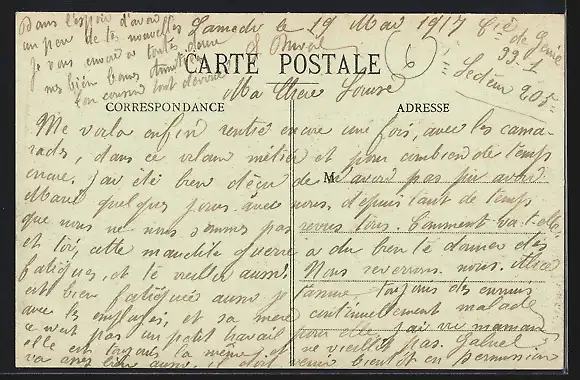 Dans l'espoir d'avoir
un peu de tes nouvelles
Je vous envoie a toutes deux
mes bien bonnes amitiés
Ton cousin tout dévoué
Samedi le 19 Mai 1917
Cie de Génie
33-1
Secteur 205
6
CARTE POSTALE
Ma Chère Louise
CORRESPONDANCE
ADRESSE
M
Me voila enfin rentré encore une fois, avec les cama-
rades, dans ce vilain métier et pour combien de temps
encore. J'ai été bien déçu de ne avoir pas pu avoir
Marie quelques jours avec nous, depuis tant de temps
que nous ne nous sommes pas revus tous. Comment va-t-elle,
et toi, cette maudite guerre a du bien te donner des
fatigues, et te vieillir aussi. Nous reverrons nous.
est bien fatiguée aussi, toujours des ennuis
avec les employés, et sa mère continuellement malade
ce n'est pas un petit travail pour elle, j'ai vu maman
elle est toujours la même, et ne vieillit pas.
va assez bien aussi, il doit venir bientôt en permission